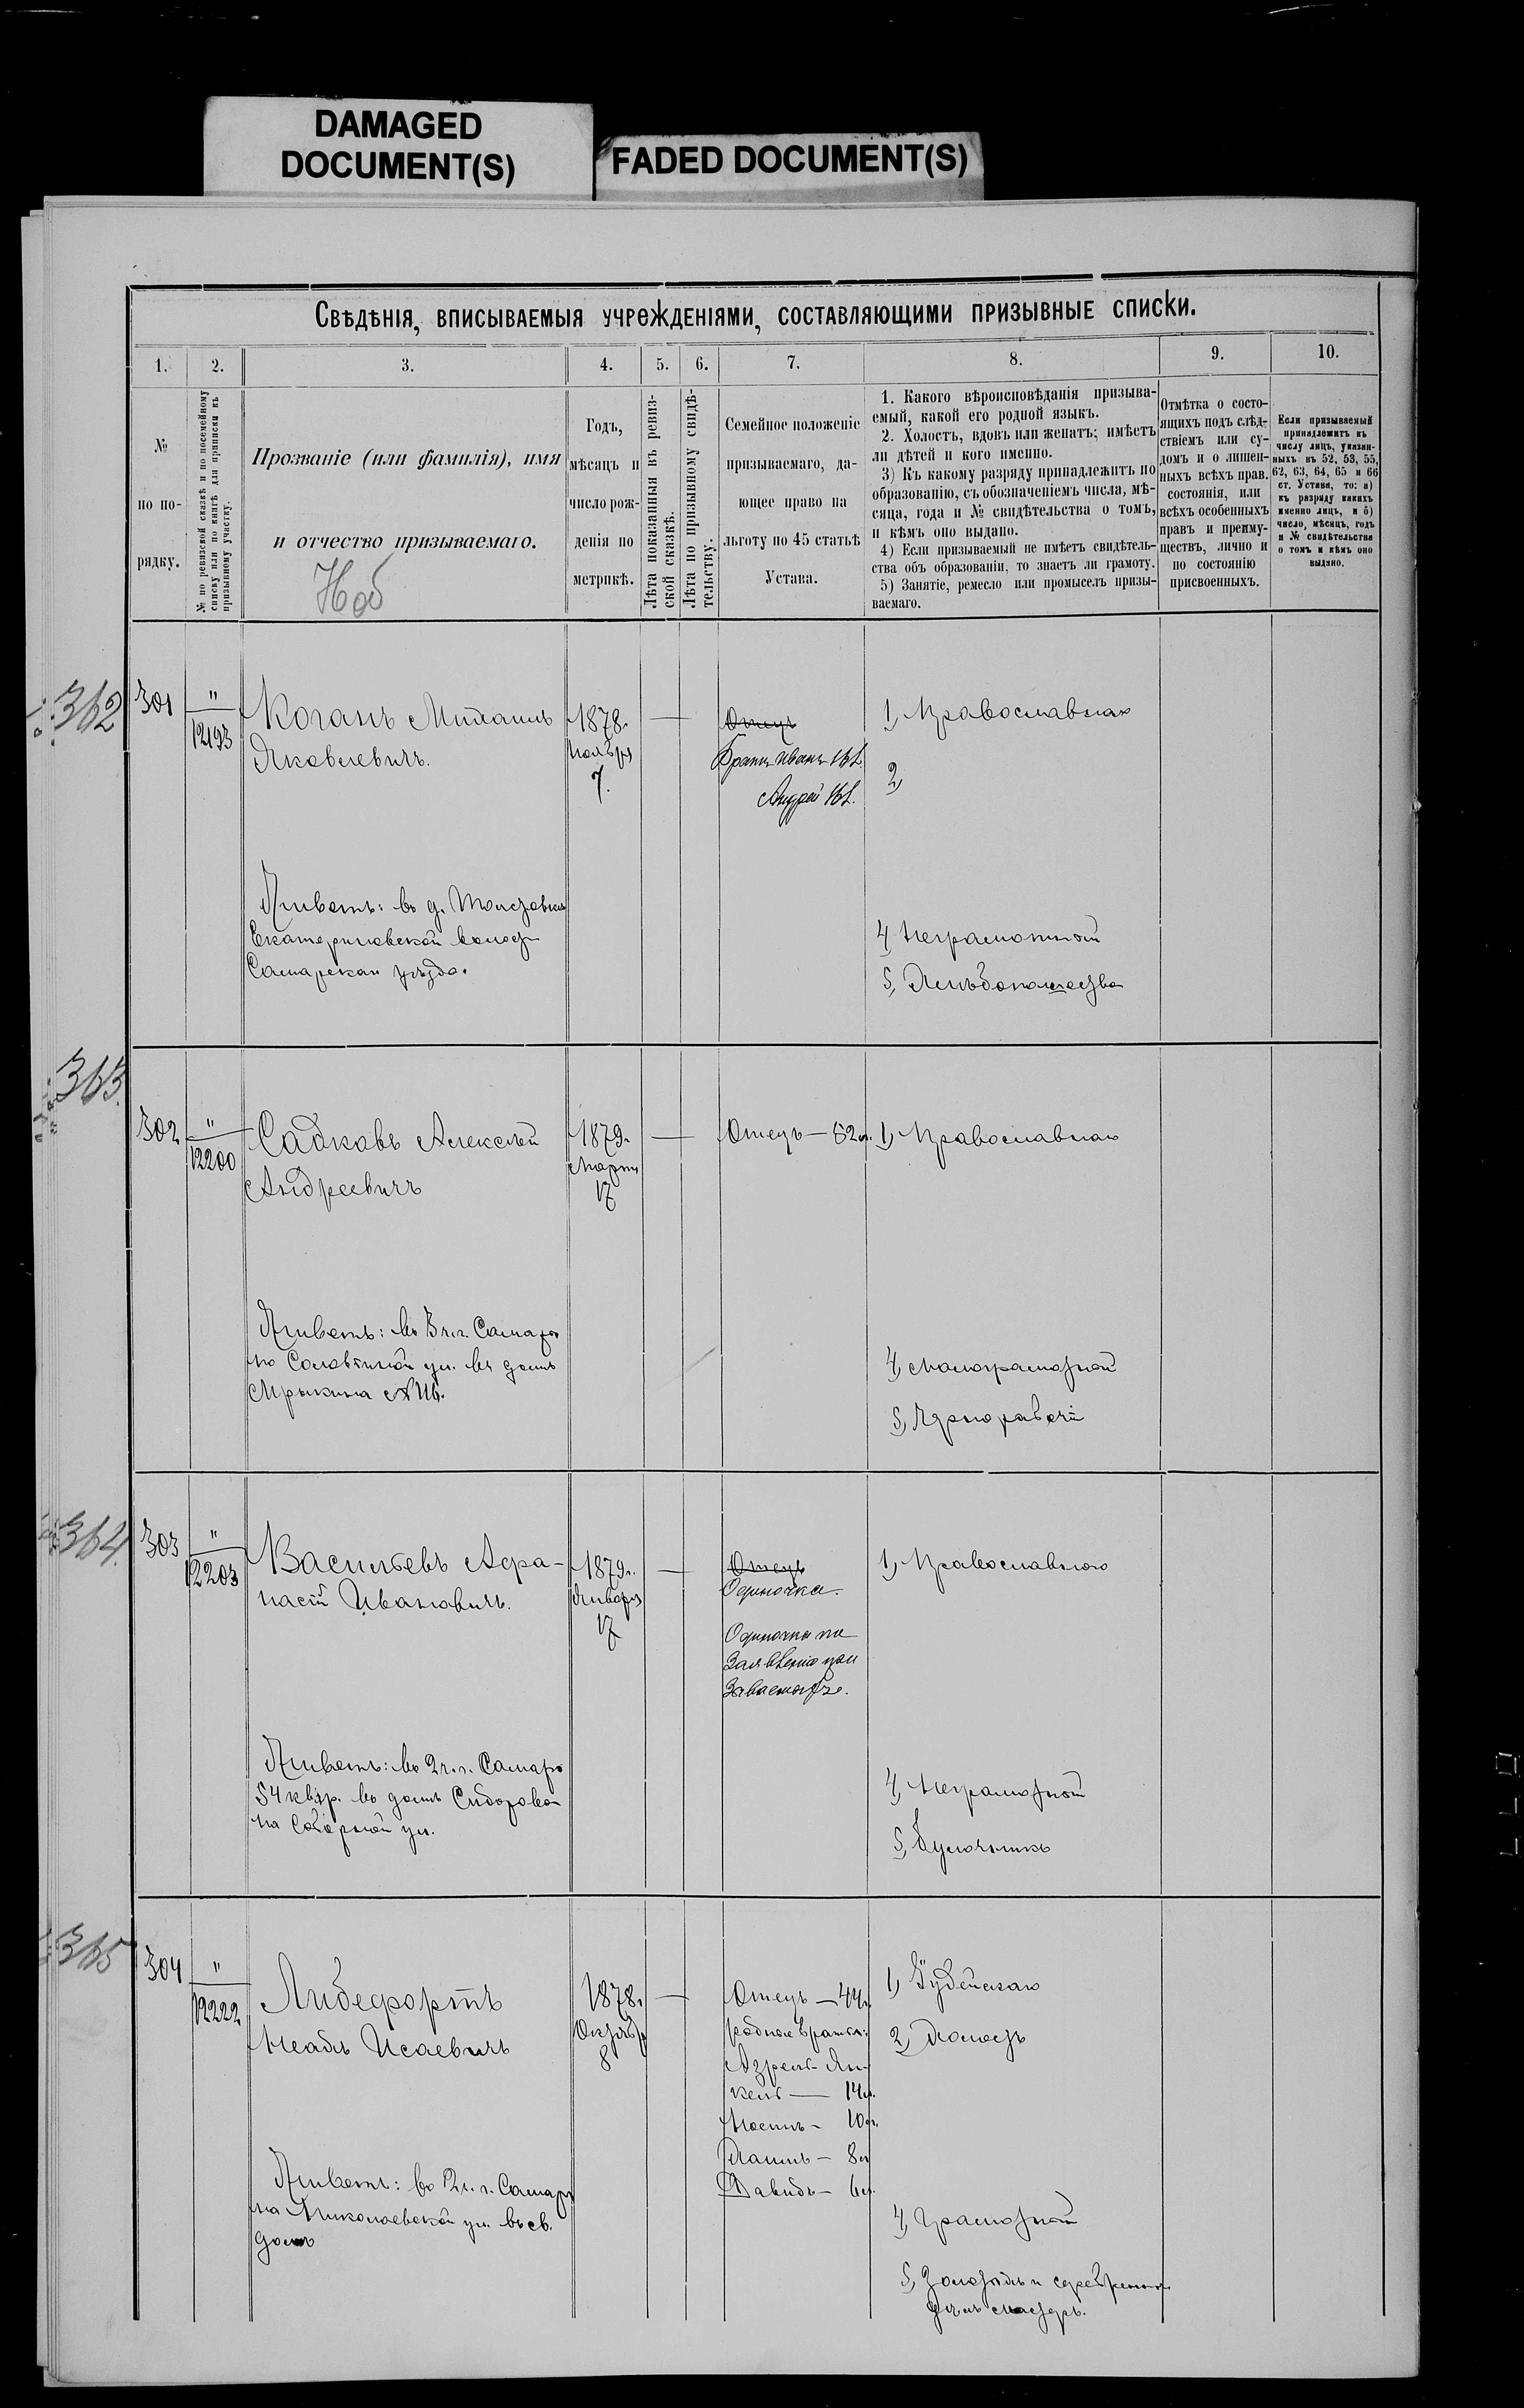 DAMAGED
DOCUMENT(S)
FADED DOCUMENT(S)
Свѣдѣнія, вписываемыя учрежденіями, составляющими призывные списки.
1. 2. 3. 4. 5. 6. 7. 8. 9. 10.
№
по по-
рядку.
№ по ревизской сказкѣ и по посемейному
списку или по книгѣ для приписки къ
призывному участку.
Прозваніе (или фамилія), имя
и отчество призываемаго.
Годъ,
мѣсяцъ и
число рож-
денія по
метрикѣ.
Лѣта показанныя въ ревиз-
ской сказкѣ.
Лѣта по призывному свидѣ-
тельству.
Семейное положеніе
призываемаго, да-
ющее право на
льготу по 45 статьѣ
Устава.
1. Какого вѣроисповѣданія призыва-
емый, какой его родной языкъ.
2. Холостъ, вдовъ или женатъ; имѣетъ
ли дѣтей и кого именно.
3) Къ какому разряду принадлежитъ по
образованію, съ обозначеніемъ числа, мѣ-
сяца, года и № свидѣтельства о томъ,
и кѣмъ оно выдано.
4) Если призываемый не имѣетъ свидѣтель-
ства объ образованіи, то знаетъ ли грамоту.
5) Занятіе, ремесло или промыселъ призы-
ваемаго.
Отмѣтка о состо-
ящихъ подъ слѣд-
ствіемъ или су-
домъ и о лишен-
ныхъ всѣхъ прав.
состоянія, или
всѣхъ особенныхъ
правъ и преиму-
ществъ, лично и
по состоянію
присвоенныхъ.
Если призываемый
принадлежитъ къ
числу лицъ, указан-
ныхъ въ 52, 53, 55,
62, 63, 64, 65 и 66
ст. Устава, то: а)
къ разряду какихъ
именно лицъ, и б)
число, мѣсяцъ, годъ
и № свидѣтельства
о томъ и кѣмъ оно
выдано.
362
301
"
12193
Коганъ Михаилъ
Яковлевичъ.
1878.
Ноября
7.
Отецъ
Братъ Иванъ 16 л.
Андрей 16 л.
1, Православная
2,
Живетъ: въ д.
Екатериновской волос.
Самарскаго уѣзда.
4, Неграмотной
5, Хлѣбопашество
363.
302
"
12200
Садковъ Алексѣй
Андреевичъ
1879.
Марта
17
Отецъ — 52 л.
1, Православная
Живетъ: въ 3 ч. г. Самары
по Соловьиной ул. въ домѣ
4, Малограмотной
5, Чернорабочій
364.
303
"
12203
Васильевъ Афа-
насій Ивановичъ.
1879.
Января
17
Отецъ
Одиночка.
Одиночка по
заявленію при
1, Православною
Живетъ: въ 2 ч. г. Самары
54 квар. въ домѣ Сидорова
на Соборной ул.
4, Неграмотной
5, Булочникъ
365
304
"
12222
Либефортъ
Неахъ Исаевичъ
1878.
Октябр
8
Отецъ — 44 л.
родные братья:
Азрель-Ян-
кель — 14 л.
Мосинъ — 10 л.
Хаимъ — 8 л.
Давидъ — 6 л.
1, Іудейская
2, Холостъ
Живетъ: въ 2 ч. г. Самары
на Николаевской ул. въ св.
домѣ
4, Грамотной
5, Золотыхъ и серебрянныхъ
дѣлъ мастеръ.